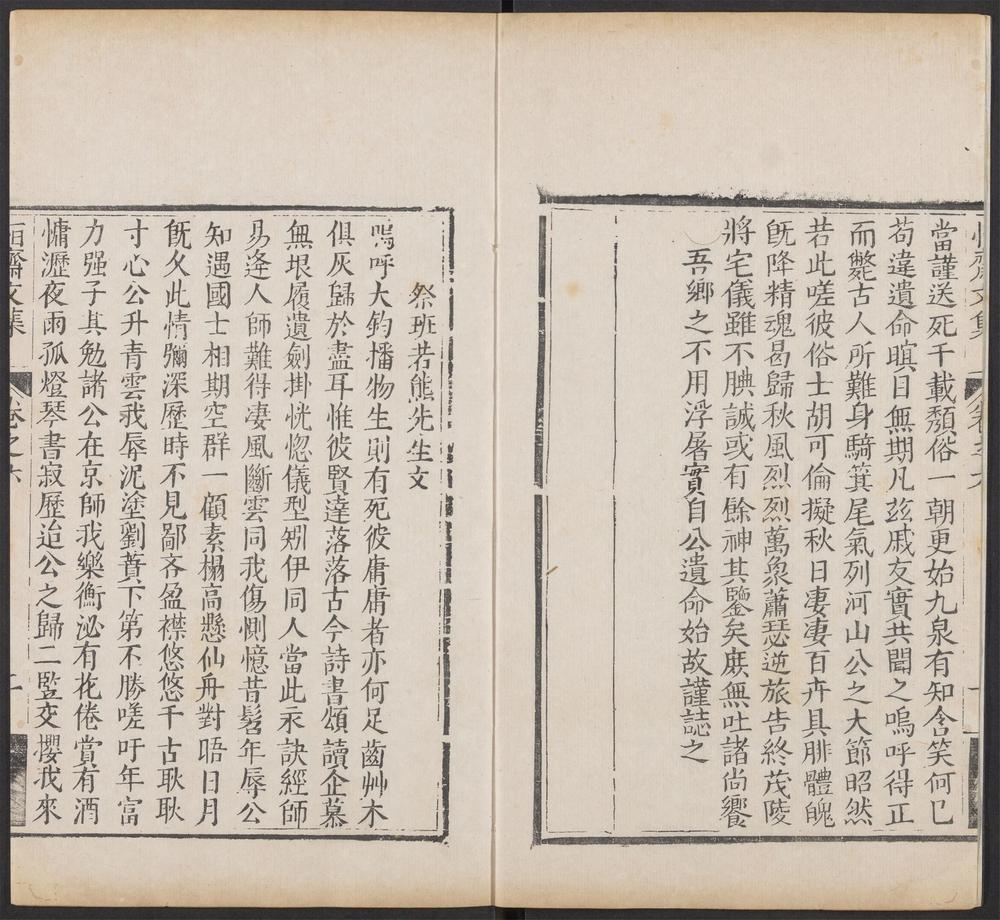 當謹送死千載頹俗一朝更始九泉有知含笑何已
苟違遺命瞑日無期凡茲戚友實共聞之嗚呼得正
而斃古人所難身騎箕尾氣列河山公之大節昭然
若此嗟彼俗士胡可倫擬秋日凄凄百卉具腓體魄
旣降精魂曷歸秋風烈烈萬象蕭瑟逆旅告終茂陵
將宅儀雖不腆誠或有餘神其鑒矣庻無吐諸尚饗
吾鄉之不用浮屠實自公遺命始故謹誌之
祭班若熊先生文
嗚呼大鈞播物生則有死彼庸庸者亦何足齒艸木
俱灰歸於盡耳惟彼賢達落落古今詩書頌讀企慕
無垠履遺劍掛恍惚儀型矧伊同人當此永訣經師
易逢人師難得凄風斷雲同我傷惻憶昔髫年辱公
知遇國士相期空群一顧素榻高懸仙舟對晤日月
旣久此情彌深歷時不見鄙吝盈襟悠悠千古耿耿
寸心公升青雲我辱泥塗劉蕡下第不勝嗟吁年富
力强子其勉諸公在京師我樂衡泌有花倦賞有酒
慵瀝夜雨孤燈琴書寂歷迨公之歸二豎交攖我來
齋文集
卷之六